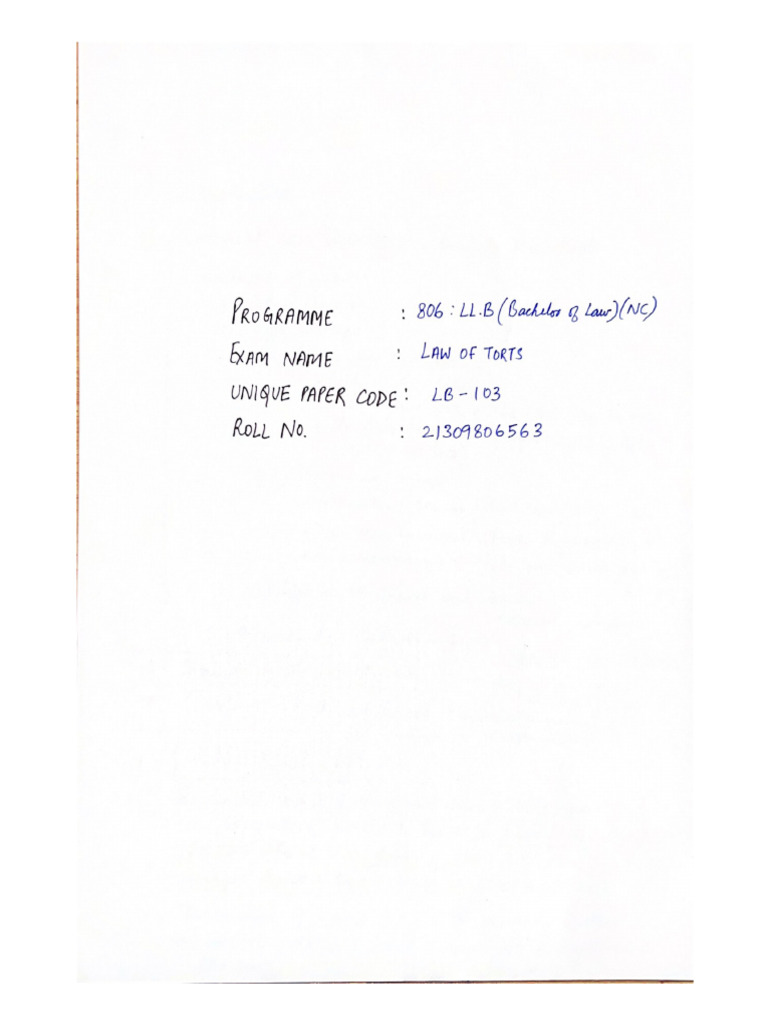 PROGRAMME : 806 : LL.B (Bachelor of Law) (NC)
EXAM NAME : LAW OF TORTS
UNIQUE PAPER CODE : LB-103
ROLL NO. : 21309806563